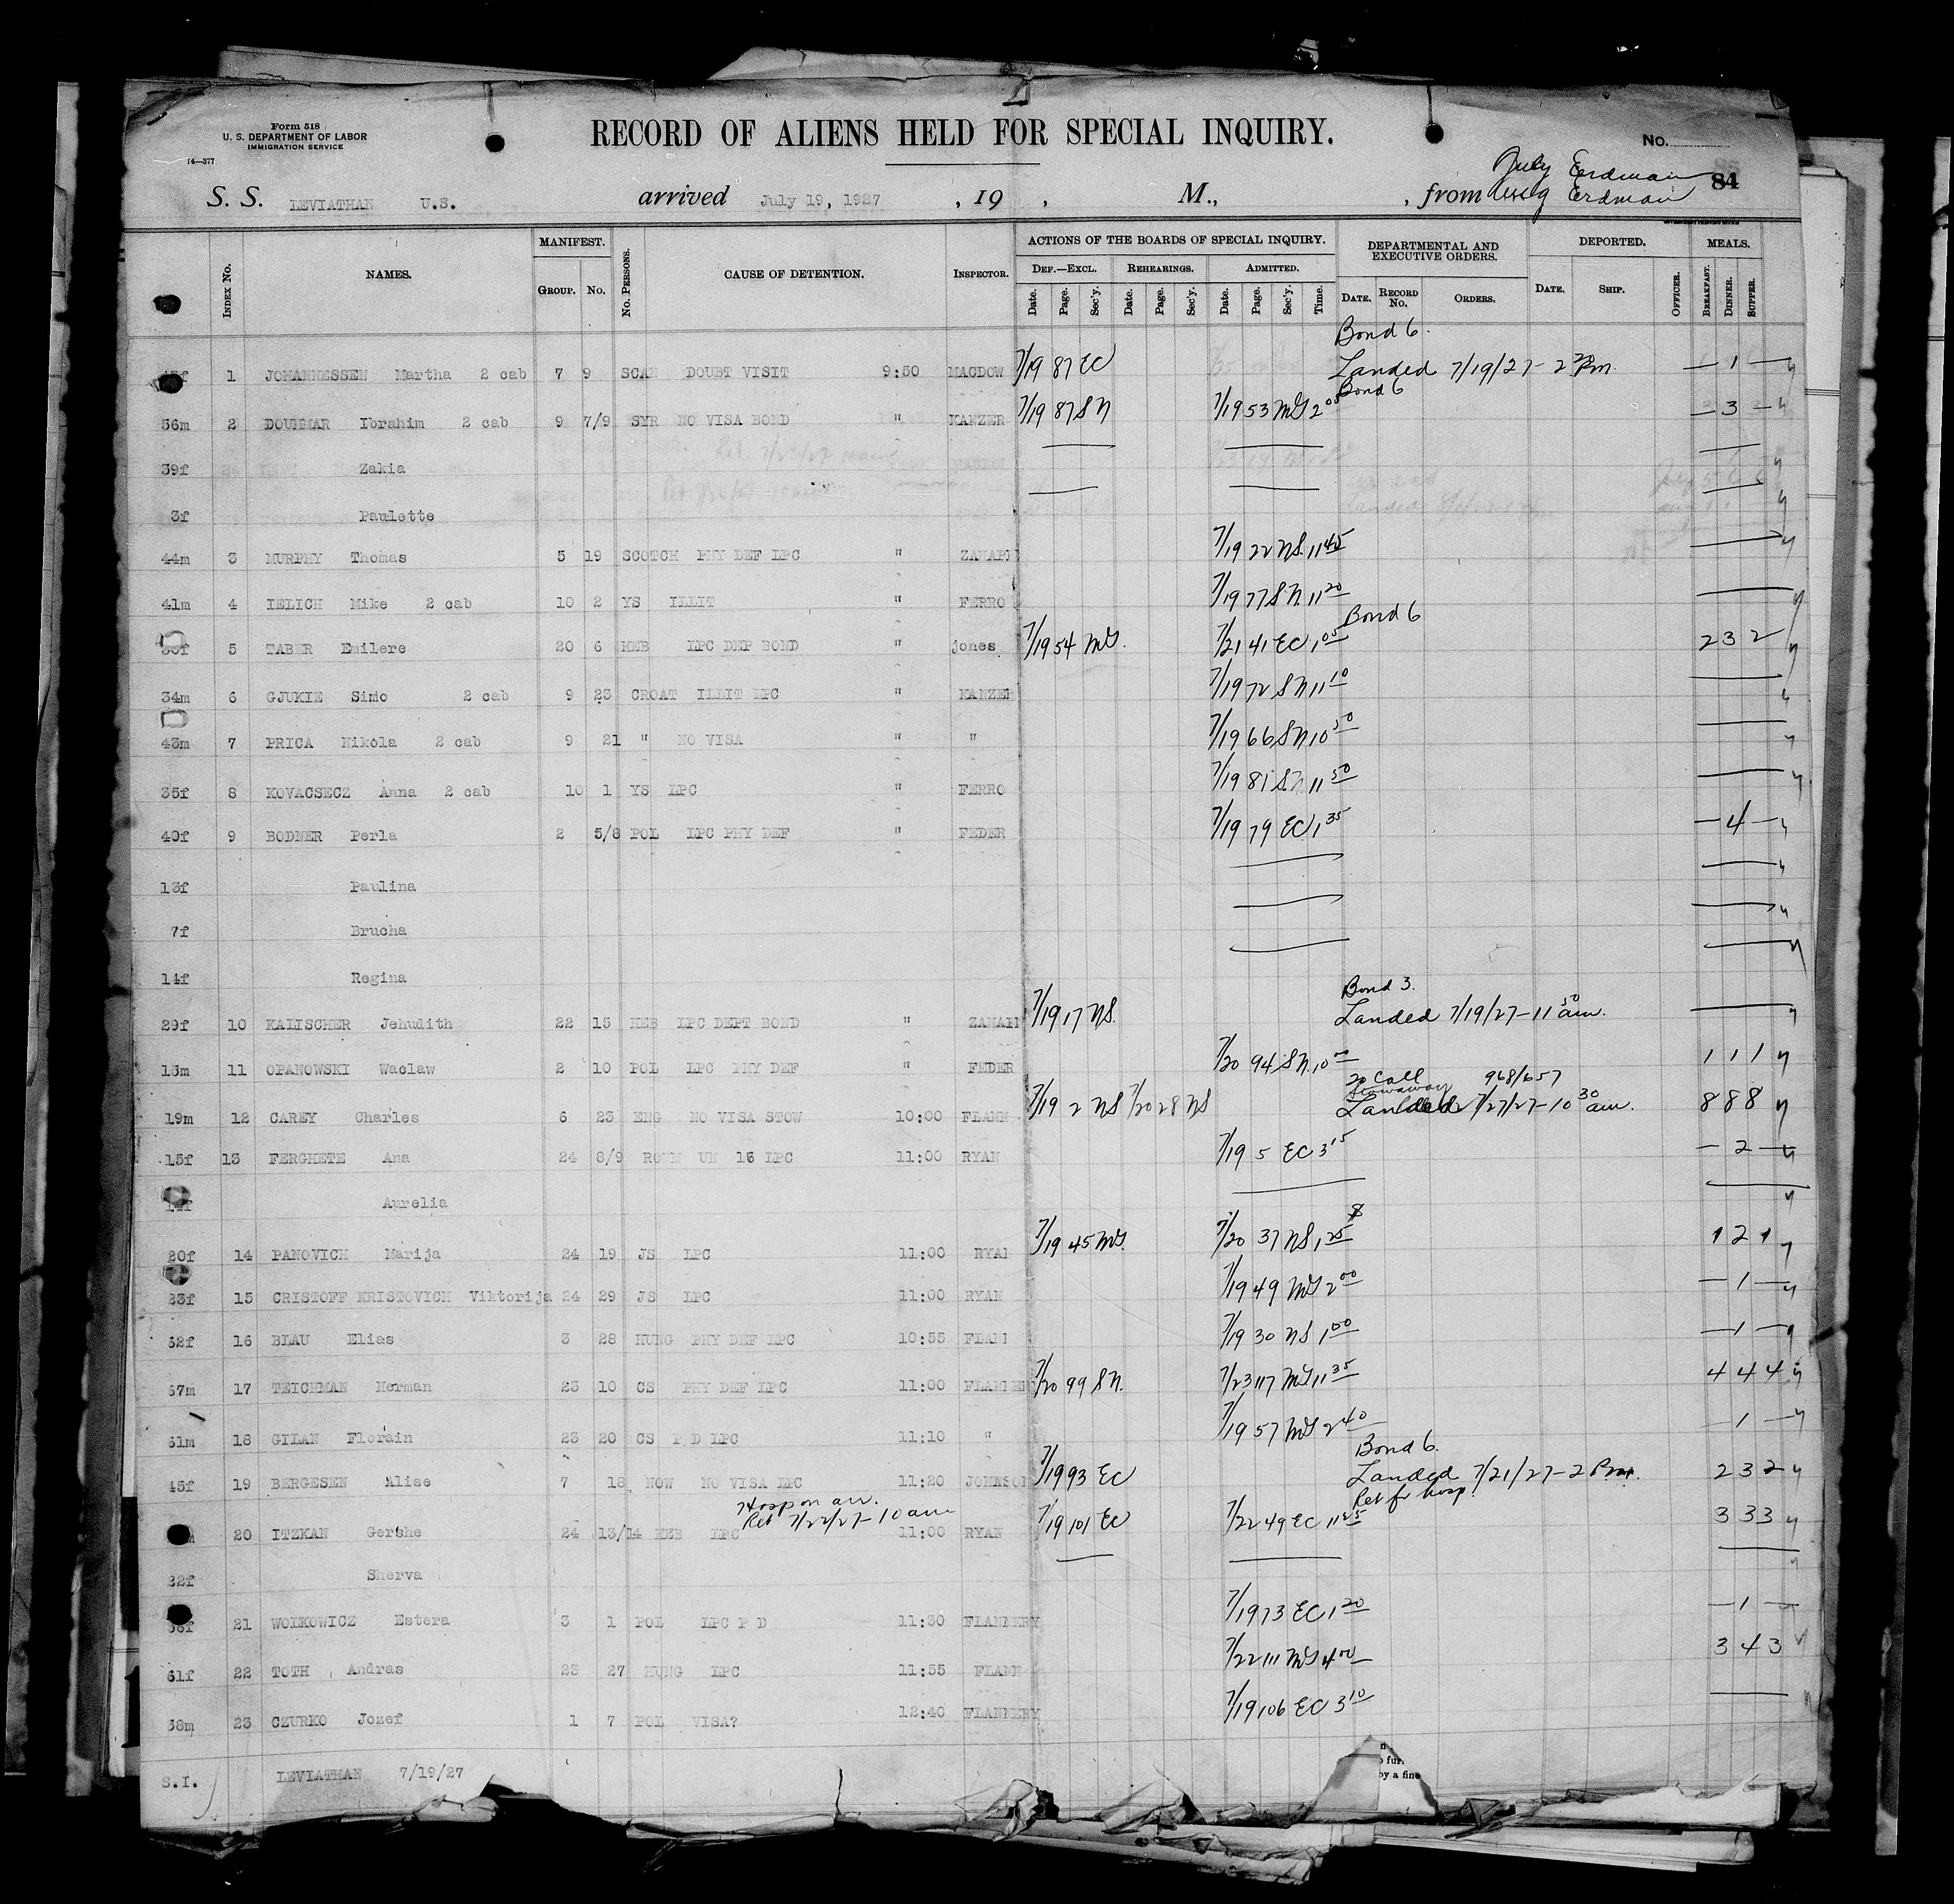 Form 518
U. S. DEPARTMENT OF LABOR
IMMIGRATION SERVICE
14—377
RECORD OF ALIENS HELD FOR SPECIAL INQUIRY.
No.
84
July Erdman
S. S. LEVIATHAN U.S. arrived July 19, 1927 , 19 , M., , from Erdman
INDEX No. NAMES. MANIFEST. GROUP. No. No. PERSONS. CAUSE OF DETENTION. INSPECTOR. ACTIONS OF THE BOARDS OF SPECIAL INQUIRY. DEF.—EXCL. REHEARINGS. ADMITTED. DEPARTMENTAL AND EXECUTIVE ORDERS. DEPORTED. MEALS.
Date. Page. Sec'y. Date. Page. Sec'y. Date. Page. Sec'y. Time. DATE. RECORD No. ORDERS. DATE. SHIP. OFFICER. BREAKFAST. DINNER. SUPPER.
Bond 6.
1 JOHANNESSEN Martha 2 cab 7 9 SCAN DOUBT VISIT 9:50 MACDOW 7/19 87 EC Landed 7/19/27 - 2 Pm. — 1 —
Bond 6
36m 2 DOUMMAR Ibrahim 2 cab 9 7/9 SYR NO VISA BOND " KANZER 7/19 87 SN 7/19 53 MG 2 05 — 3 —
39f Zakia
3f Paulette
44m 3 MURPHY Thomas 5 19 SCOTCH PHY DEF LPC " ZAMAPI 7/19 22 NS 11 45
41m 4 IELICH Mike 2 cab 10 2 YS ILLIT " FERRO 7/19 77 SN 11 20
Bond 6
5 TABER Emilere 20 6 HEB LPC DEP BOND " jones 7/19 54 MG. 7/21 41 EC 1 05 2 3 2
34m 6 GJUKIE Simo 2 cab 9 23 CROAT ILLIT LPC " KANZER 7/19 72 SN 11 10
43m 7 PRICA Nikola 2 cab 9 21 " NO VISA " " 7/19 66 SN 10 50
35f 8 KOVACSECZ Anna 2 cab 10 1 YS LPC " FERRO 7/19 81 SN 11 50
40f 9 BODNER Perla 2 5/8 POL LPC PHY DEF " FEDER 7/19 79 EC 1 35 — 4 —
13f Paulina
7f Brucha
14f Regina
Bond 3.
29f 10 KALISCHER Jehudith 22 15 HEB LPC DEPT BOND " ZAMAPI 7/19 17 NS. Landed 7/19/27 - 11 50 am.
13m 11 OPANOWSKI Waclaw 2 10 POL LPC PHY DEF " FEDER 7/20 94 SN 10 00 1 1 1
20 Call 968/657
Stowaway
19m 12 CAREY Charles 6 23 ENG NO VISA STOW 10:00 FLANN 7/19 2 NS 7/20 28 NS Landed 7/27/27 - 10 30 am. 8 8 8
15f 13 FERGHETE Ana 24 8/9 ROUM UN 16 LPC 11:00 RYAN 7/19 5 EC 3 15 — 2 —
Aurelia
20f 14 PANOVICH Marija 24 19 JS LPC 11:00 RYAN 7/19 45 MG. 7/20 37 NS 1 25 1 2 1
23f 15 CRISTOFF KRISTOVICH Viktorija 24 29 JS LPC 11:00 RYAN 7/19 49 MG 2 00 — 1 —
62f 16 BLAU Elias 3 28 HUNG PHY DEF LPC 10:55 FLAN 7/19 30 NS 1 00 — 1 —
67m 17 TEICHMAN Herman 23 10 CS PHY DEF LPC 11:00 FLANNER 7/20 99 SN. 7/23 117 MG 11 35 4 4 4
61m 18 GILAN Florain 23 20 CS P D LPC 11:10 " 7/19 57 MG 2 40 — 1 —
Bond 6.
45f 19 BERGESEN Alise 7 18 NOW NO VISA LPC 11:20 JOHNSON 7/19 93 EC Landed 7/21/27 - 2 Pm. 2 3 2
Hosp on arr. Ret fr hosp
Ret 7/22/27 - 10 am
20 ITZKAN Gershe 24 13/14 HEB LPC 11:00 RYAN 7/19 101 EC 7/22 49 EC 11 25 3 3 3
22f Sherva
36f 21 WOLKOWICZ Estera 3 1 POL LPC P D 11:30 FLANNERY 7/19 73 EC 1 20 — 1 —
61f 22 TOTH Andras 23 27 HUNG LPC 11:55 FLANN 7/22 111 MG 4 00 3 4 3
38m 23 CZURKO Jozef 1 7 POL VISA? 12:40 FLANNERY 7/19 106 EC 3 10
S.I. LEVIATHAN 7/19/27
by a fine